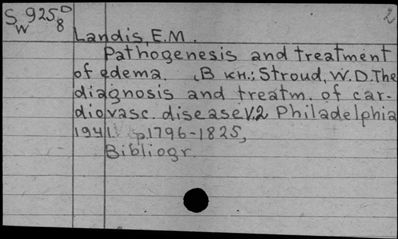 S 925 D 2
W 8
Landis, E.M.
Pathogenesis and treatment
of edema. В кн.: Stroud, W.D. The
diagnosis and treatm. of car-
diovasc. disease V.2 Philadelphia
1941. p.1796-1825,
Bibliogr.